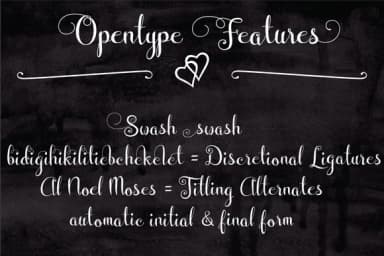 Opentype Features
Swash swash
bidigihikilitiebchckelct = Discretional Ligatures
Al Noel Moses = Titling Alternates
automatic initial & final form